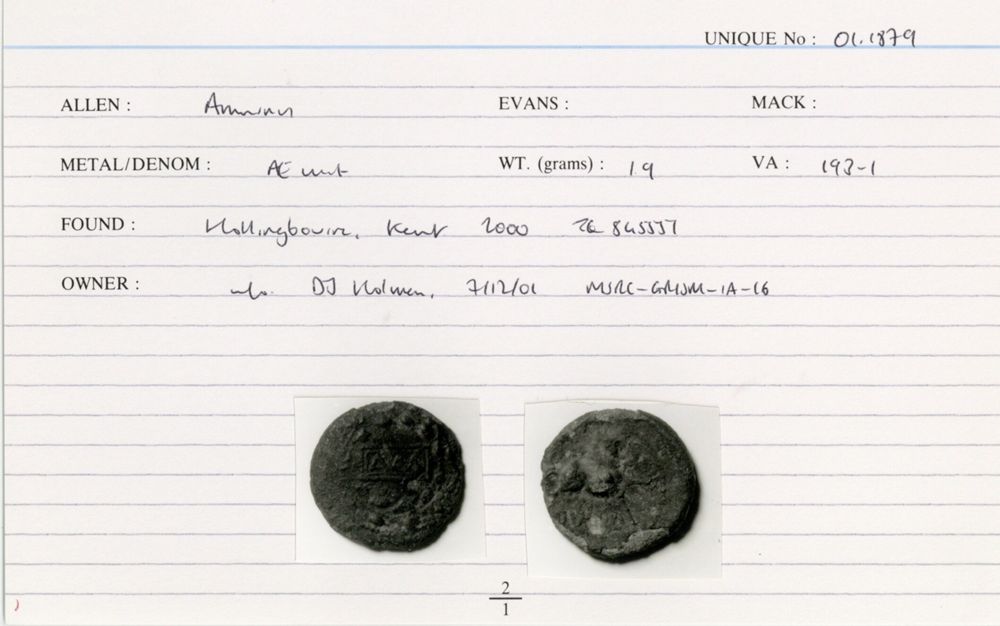 UNIQUE No : 01.1879
ALLEN : Amminus EVANS : MACK :
METAL/DENOM : AE unit WT. (grams) : 1.9 VA : 193-1
FOUND : Hollingbourne, Kent 2000 845551
OWNER : info. DJ Holman, 7/12/01
2
1